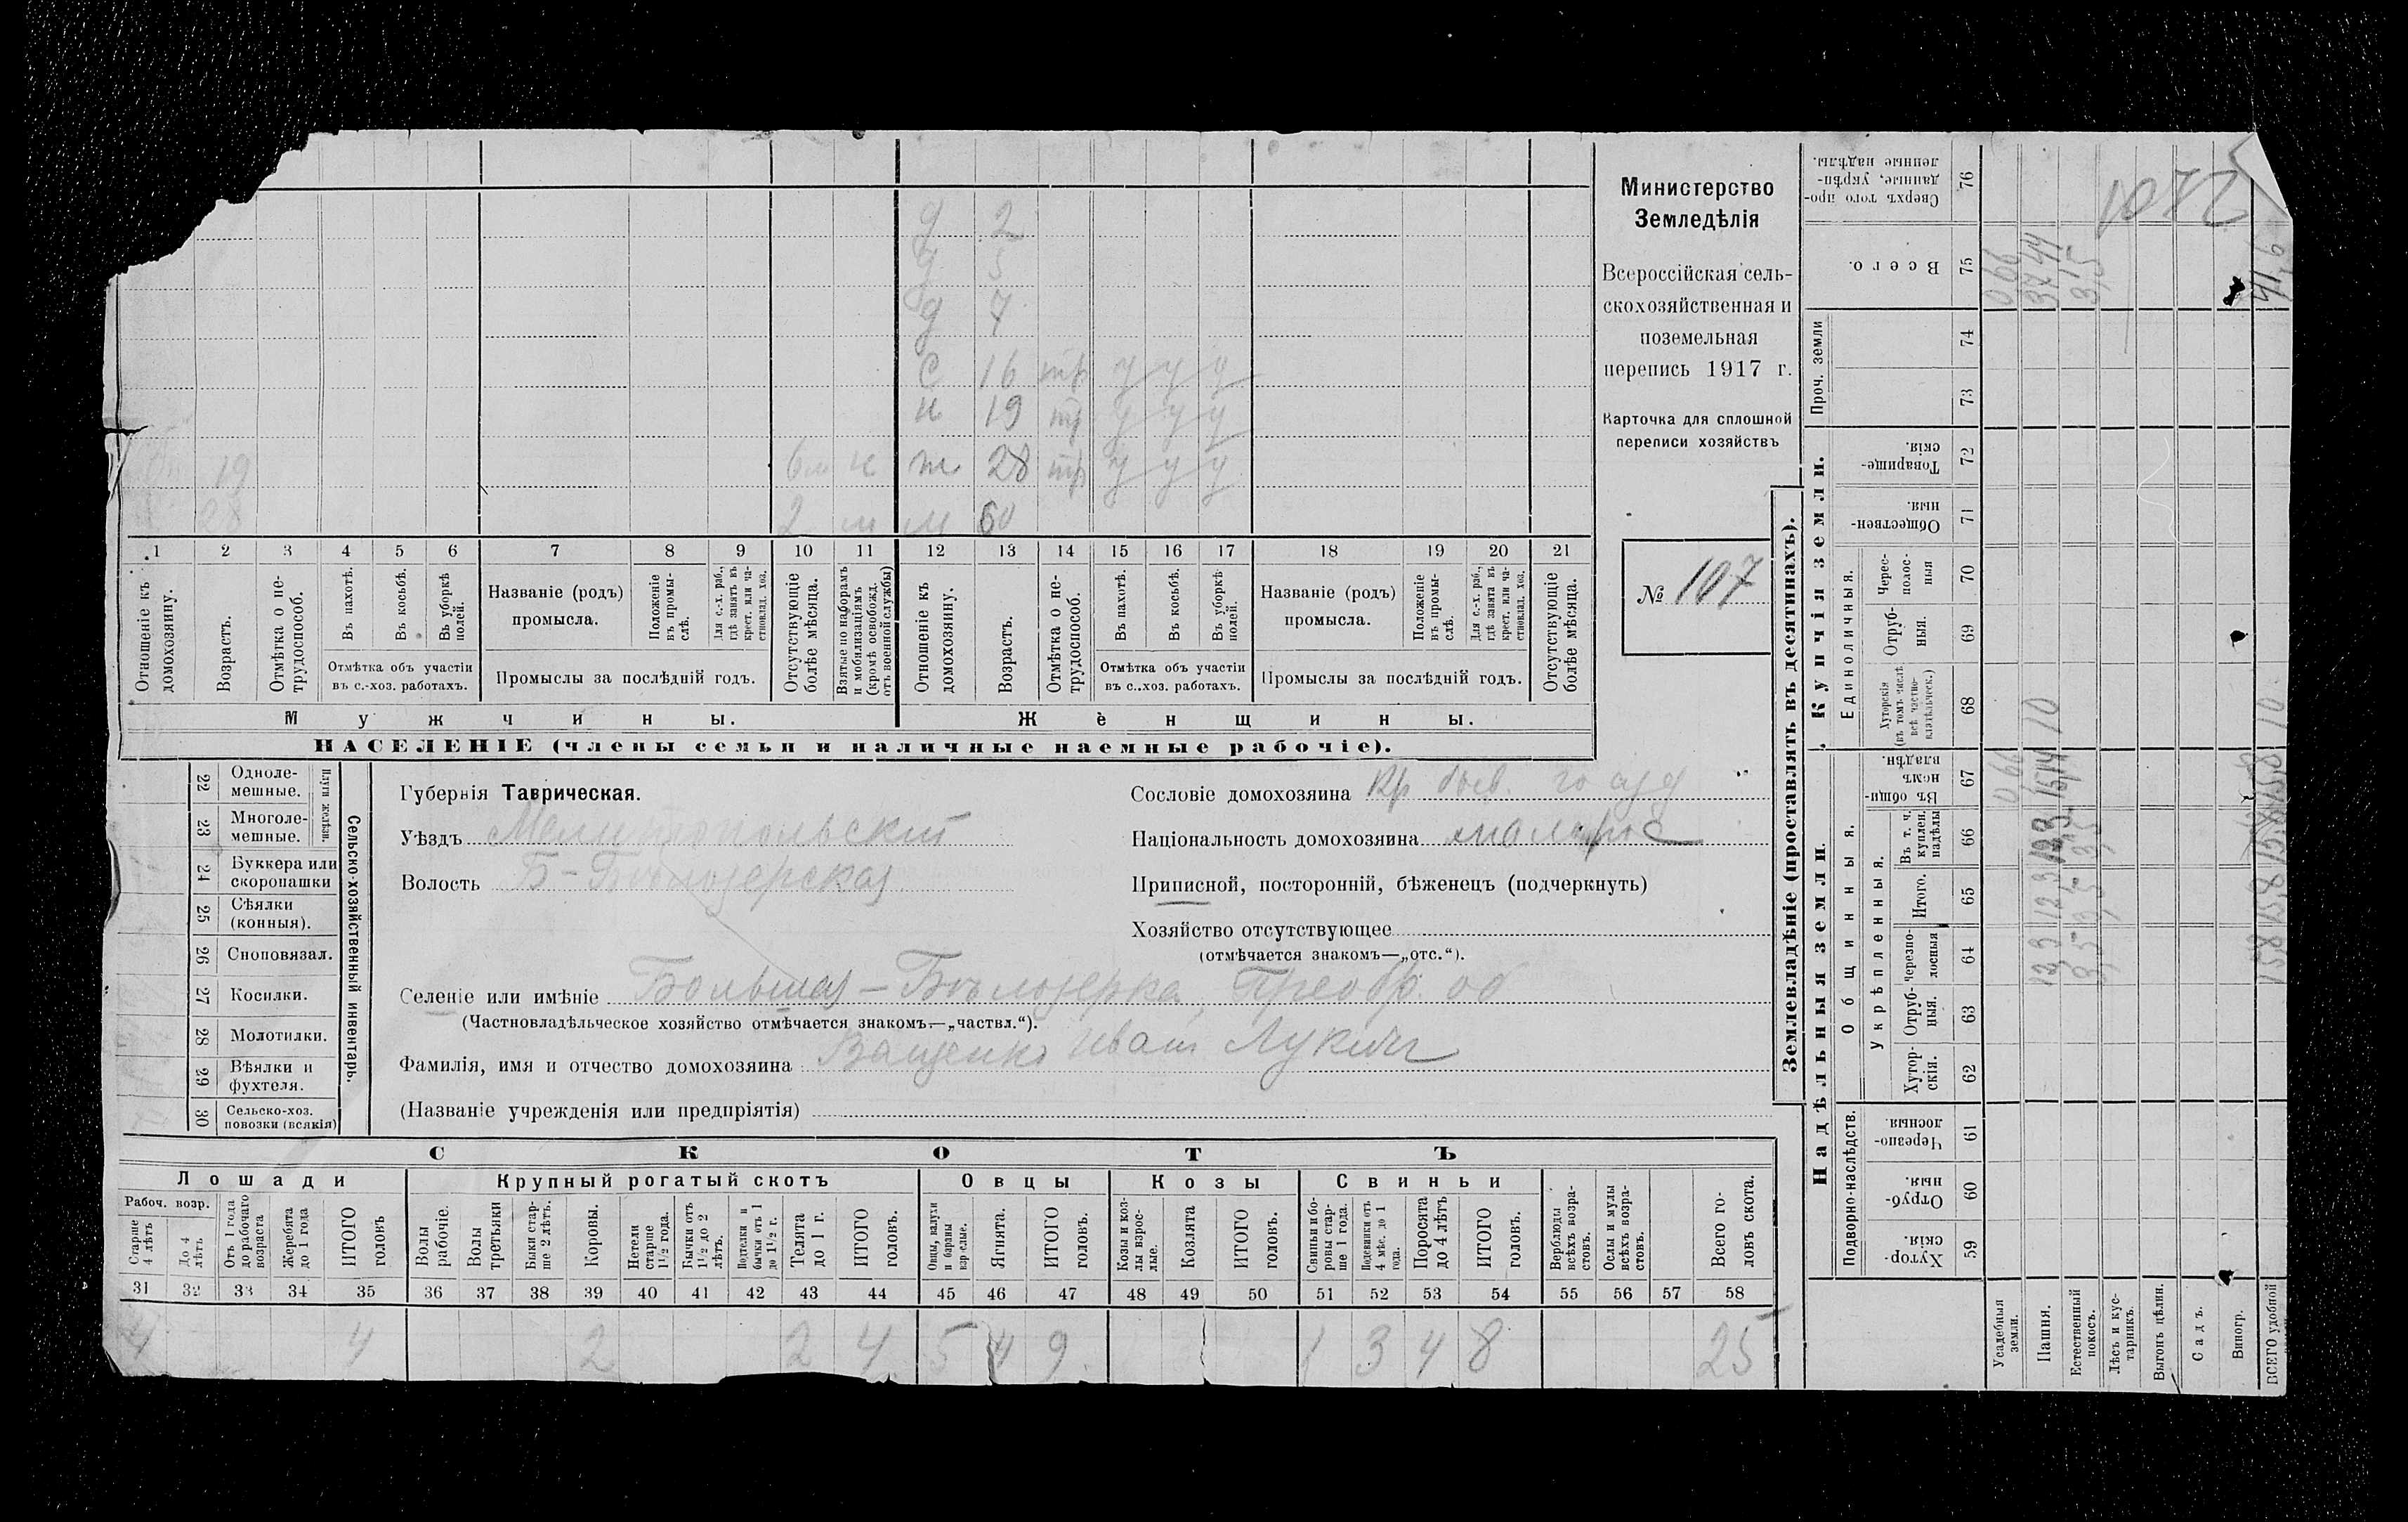 д 2
д 5
д 7
с 16 тр у у у
н 19 тр у у у
19 6м н ж 28 тр у у у
28 2 м м 60
1 2 3 4 5 6 7 8 9 10 11 12 13 14 15 16 17 18 19 20 21
Отношеніе къ домохозяину.
Возрастъ.
Отмѣтка о нетрудоспособ.
Въ пахотѣ.
Въ косьбѣ.
Въ уборкѣ полей.
Отмѣтка объ участіи въ с.-хоз. работахъ.
Названіе (родъ) промысла.
Положеніе въ промыслѣ.
Для с.-х. раб., гдѣ занятъ въ крест. или частновлад. хоз.
Промыслы за послѣдній годъ.
Отсутствующіе болѣе мѣсяца.
Взятые по наборамъ и мобилизаціямъ (кромѣ освобожд. отъ военной службы)
Отношеніе къ домохозяину.
Возрастъ.
Отмѣтка о нетрудоспособ.
Въ пахотѣ.
Въ косьбѣ.
Въ уборкѣ полей.
Отмѣтка объ участіи въ с..хоз. работахъ.
Названіе (родъ) промысла.
Положеніе въ промыслѣ.
Для с.-х. раб., гдѣ занята въ крест. или частновлад. хоз.
Промыслы за послѣдній годъ.
Отсутствующіе болѣе мѣсяца.
Мужчины.
Женщины.
НАСЕЛЕНІЕ (члены семьи и наличные наемные рабочіе).
Министерство
Земледѣлія
Всероссійская сель-
скохозяйственная и
поземельная
перепись 1917 г.
Карточка для сплошной
переписи хозяйствъ
№ 107
22 Одноле-мешные.
23 Многоле-мешные.
Плуги желѣзн.
24 Буккера или скоропашки
25 Сѣялки (конныя).
26 Сноповязал.
27 Косилки.
28 Молотилки.
29 Вѣялки и фухтеля.
30 Сельско-хоз. повозки (всякія)
Сельско-хозяйственный инвентарь.
Губернія Таврическая.
Уѣздъ Мелитопольскій
Волость Б-Бѣлозерская
Сословіе домохозяина Кр быв. госуд
Національность домохозяина малорос
Приписной, посторонній, бѣженецъ (подчеркнуть)
Хозяйство отсутствующее
(отмѣчается знакомъ—„отс.“).
Селеніе или имѣніе Большая-Бѣлозерка, Преобр. об
(Частновладѣльческое хозяйство отмѣчается знакомъ—„частвл.“).
Фамилія, имя и отчество домохозяина Ващенко Иван Лукич
(Названіе учрежденія или предпріятія)
СКОТЪ
Лошади
Крупный рогатый скотъ
Овцы
Козы
Свиньи
Рабоч. возр.
Старше 4 лѣтъ
До 4 лѣтъ
Отъ 1 года до рабочаго возраста
Жеребята до 1 года
ИТОГО головъ
Волы рабочіе.
Волы третьяки
Быки старше 2 лѣтъ.
Коровы.
Нетели старше 1½ года.
Бычки отъ 1½ до 2 лѣтъ.
Подтелки и бычки отъ 1 до 1½ г.
Телята до 1 г.
ИТОГО головъ.
Овцы, валухи и бараны взрослые.
Ягнята.
ИТОГО головъ.
Козы и козлы взрослые.
Козлята
ИТОГО головъ.
Свиньи и боровы старше 1 года.
Подсвинки отъ 4 мѣс. до 1 года.
Поросята до 4 лѣтъ
ИТОГО головъ.
Верблюды всѣхъ возрастовъ.
Ослы и мулы всѣхъ возрастовъ.
Всего головъ скота.
31 32 33 34 35 36 37 38 39 40 41 42 43 44 45 46 47 48 49 50 51 52 53 54 55 56 57 58
4 4 2 2 4 5 4 9 1 3 4 8 25
Землевладѣніе (проставлять въ десятинахъ).
Надѣльныя земли.
Купчія земли.
Проч. земли
Подворно-наслѣдств.
Общинныя.
Укрѣпленныя.
Единоличныя.
Хутор-скія. 59
Отруб-ныя. 60
Черезпо-лосныя. 61
Хутор-скія. 62
Отруб-ныя. 63
Черезпо-лосныя 64
Итого. 65
Въ т. ч. куплен. надѣлы 66
Въ общин-номъ владѣн. 67
Хуторскія (въ томъ числѣ всѣ частно-владѣльческ.) 68
Отруб-ныя. 69
Черес-полос-ныя 70
Обществен-ныя. 71
Товарище-скія. 72
73
74
Всего. 75
Сверхъ того про-данные, укрѣп-ленные надѣлы. 76
Усадебныя земли. 0,66 0,66
Пашня. 12,3 12,3 12,3 15,14 10 37,44
Естественный покосъ. 3,5 3,5 3,5 3,5
Лѣсъ и кус-тарникъ.
Выгонъ цѣлин.
Садъ.
Виногр.
ВСЕГО удобной 15,8 15,8 15,8 15,8 10 41,6
1072